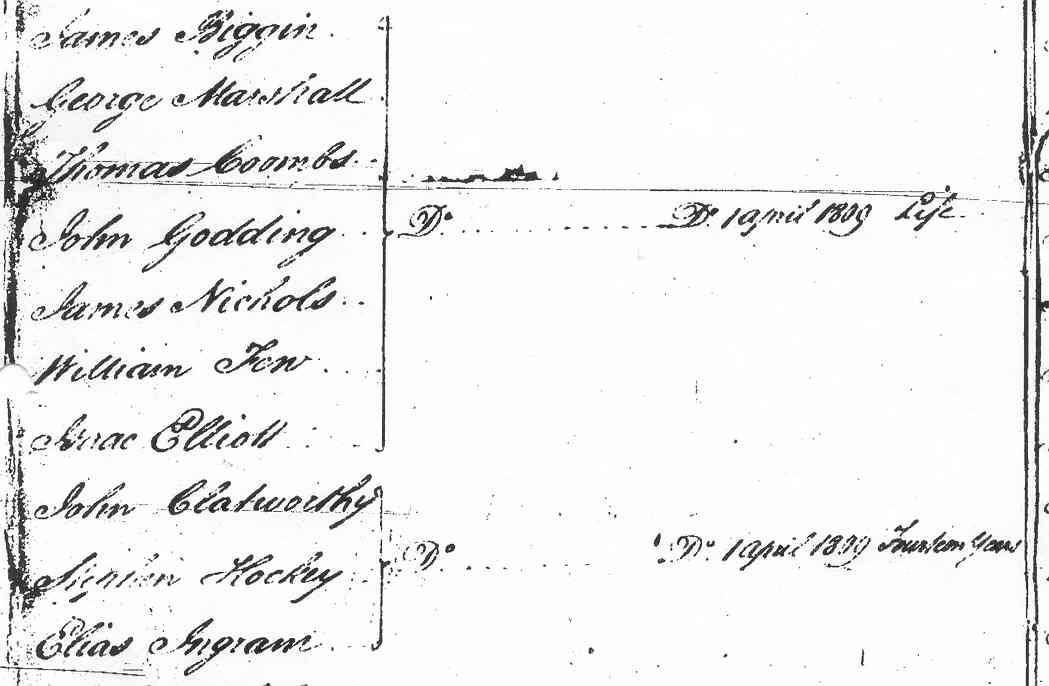 James Biggin
George Marshall
Thomas Coombs
John Godding } Do. Do. 1 April 1809 Life
James Nichols
William Few
Isaac Elliott
John Clatworthy
Stephen Hockey } Do. Do. 1 April 1809 Fourteen Years
Elias Ingram